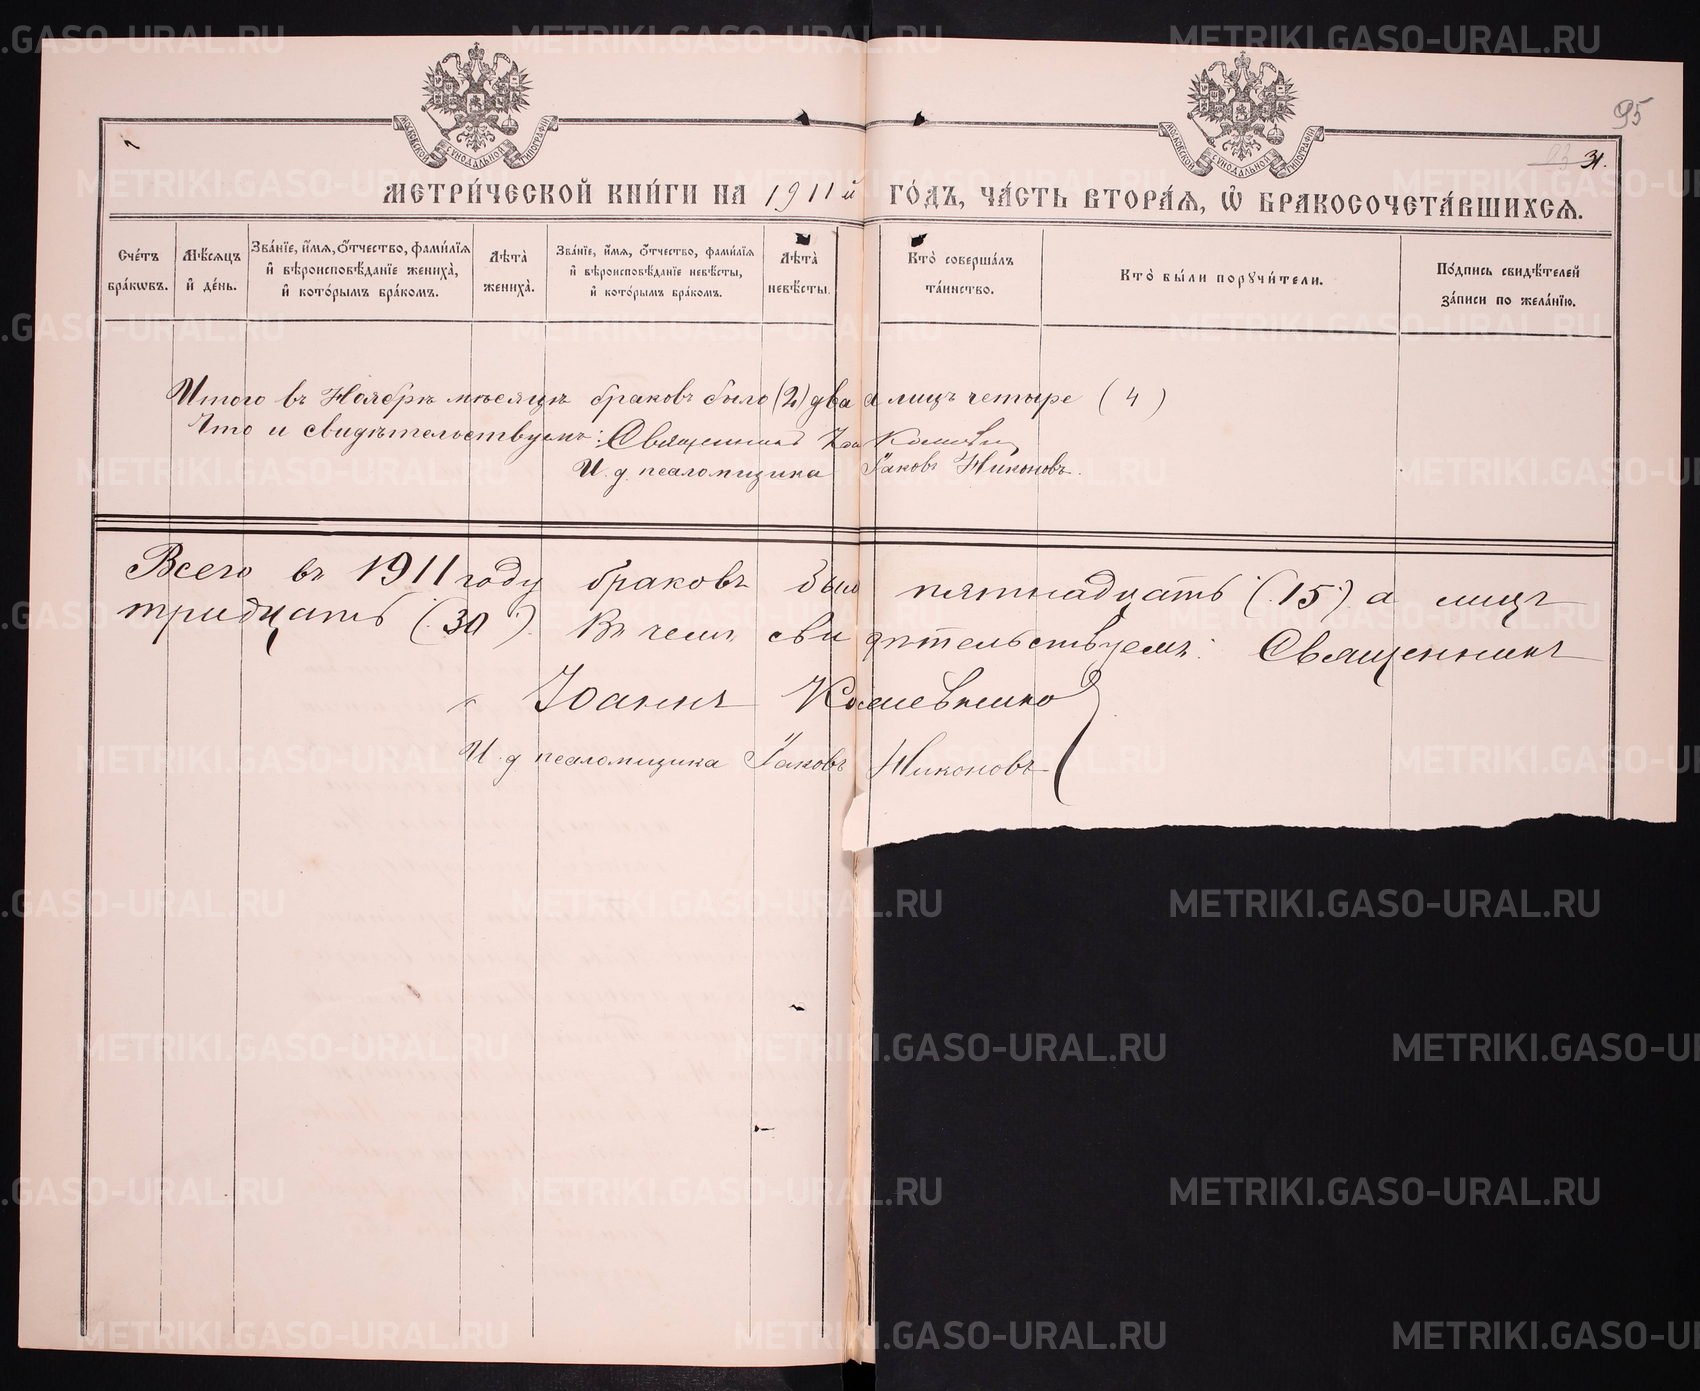 95
31.
МОСКОВСКОЙ СѴНОДАЛЬНОЙ ТИПОГРАФІИ
МОСКОВСКОЙ СѴНОДАЛЬНОЙ ТИПОГРАФІИ
МЕТРИ́ЧЕСКОЙ КНИ́ГИ НА 1911й ГО́ДЪ, ЧА́СТЬ ВТОРА́Ѧ, Ѽ БРАКОСОЧЕТА́ВШИХСѦ.
Сче́тъ бра́кѡвъ.
Мѣ́сяцъ и҆ де́нь.
Зва́нїе, и҆́мѧ, ѻ҆́тчество, фами́лїѧ и҆ вѣроисповѣ́данїе жениха̀, и҆ кото́рымъ бра́комъ.
Лѣ́та жениха̀.
Зва́нїе, и҆́мѧ, ѻ҆́тчество, фами́лїѧ и҆ вѣроисповѣ́данїе невѣ́сты, и҆ кото́рымъ бра́комъ.
Лѣ́та невѣ́сты.
Кто̀ соверша́лъ та́инство.
Кто̀ бы́ли порꙋчи́тели.
По́дпись свидѣ́телей за́писи по жела́нїю.
Итого въ Ноябрѣ мѣсяцѣ браковъ было (2) два а лицъ четыре (4)
Что и свидѣтельствуемъ: Священникъ
И. д. псаломщика Іаковъ Никоновъ.
Всего въ 1911 году браковъ было пятнадцать (15) а лицъ
тридцать (30). Въ чемъ свидѣтельствуемъ: Священникъ
Іоаннъ
И. д. псаломщика Іаковъ Никоновъ
METRIKI.GASO-URAL.RU